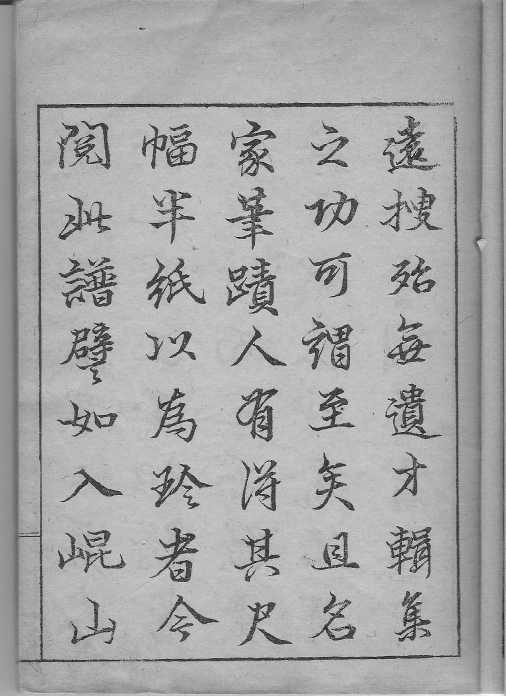 遠搜殆無遺才輯集
之功可謂至矣且名
家筆蹟人有得其尺
幅半紙以為珍者今
閲此譜譬如入崐山